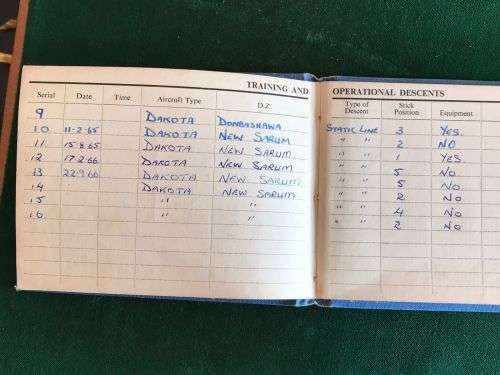 TRAINING AND OPERATIONAL DESCENTS
Serial Date Time Aircraft Type D.Z. Type of Descent Stick Position Equipment
9 DAKOTA DONBASHAWA STATIC LINE 3 YES.
10 11-2-65 DAKOTA NEW SARUM " " 2 NO
11 15-8-65 DAKOTA NEW SARUM " " 1 YES.
12 17.2.66 DAKOTA NEW SARUM " " 5 NO
13 22.9.66 DAKOTA NEW SARUM " " 5 NO
14 DAKOTA NEW SARUM " " 2 NO
15 " " " " 4 NO
16 " " " " 2 NO